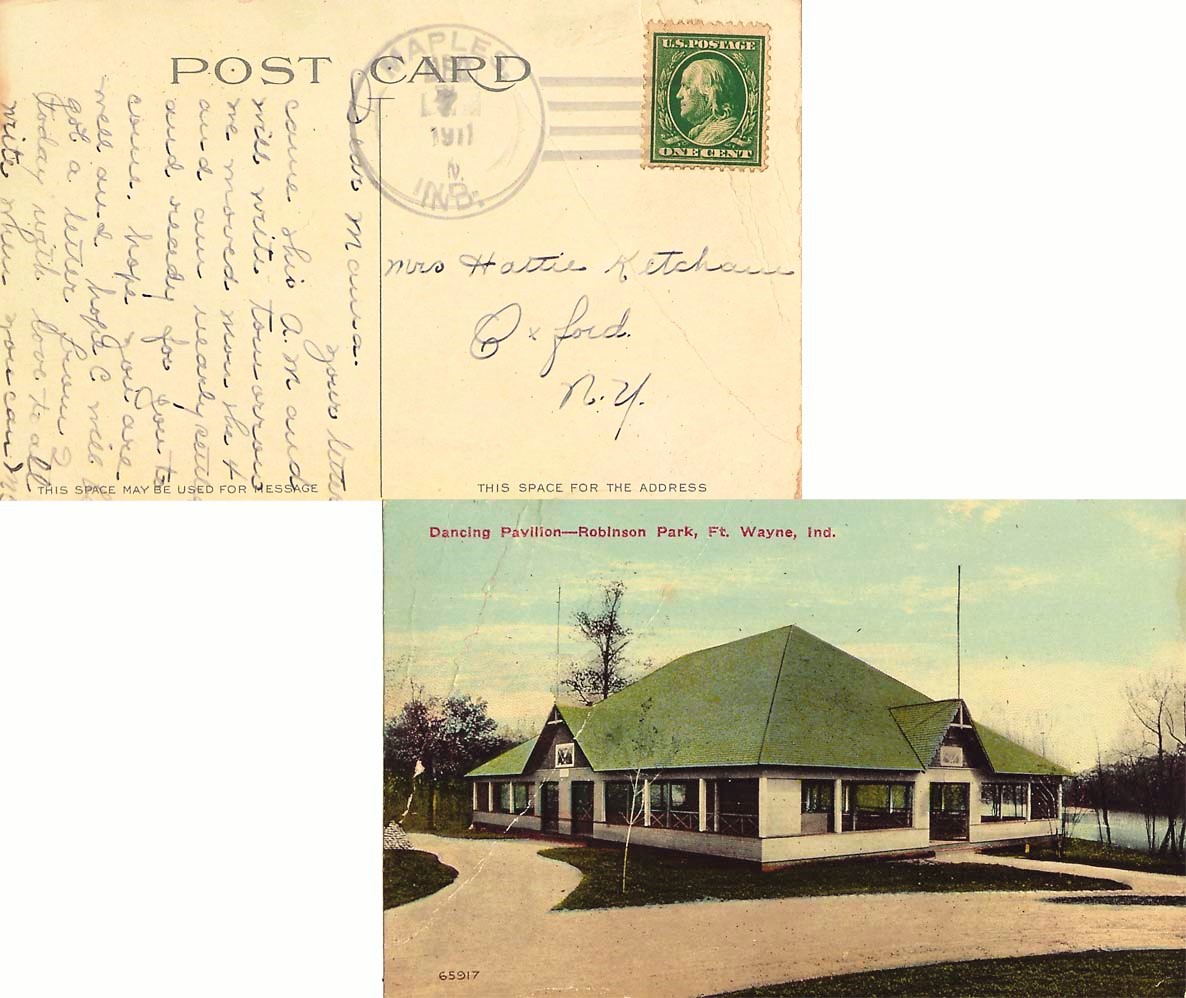 POST CARD
U.S. POSTAGE
ONE CENT
MAPLES
DEC
7
1911
IND.
Dear Mama.
your letter
came this A.M and
will write tomorrow
we moved mon the 4
and am nearly settled
and ready for you to
come. hope you are
well and hope C will
got a letter from
today with love to all
write when you can
THIS SPACE MAY BE USED FOR MESSAGE
Mrs Hattie Ketcham
Oxford
N.Y.
THIS SPACE FOR THE ADDRESS
Dancing Pavilion—Robinson Park, Ft. Wayne, Ind.
65917